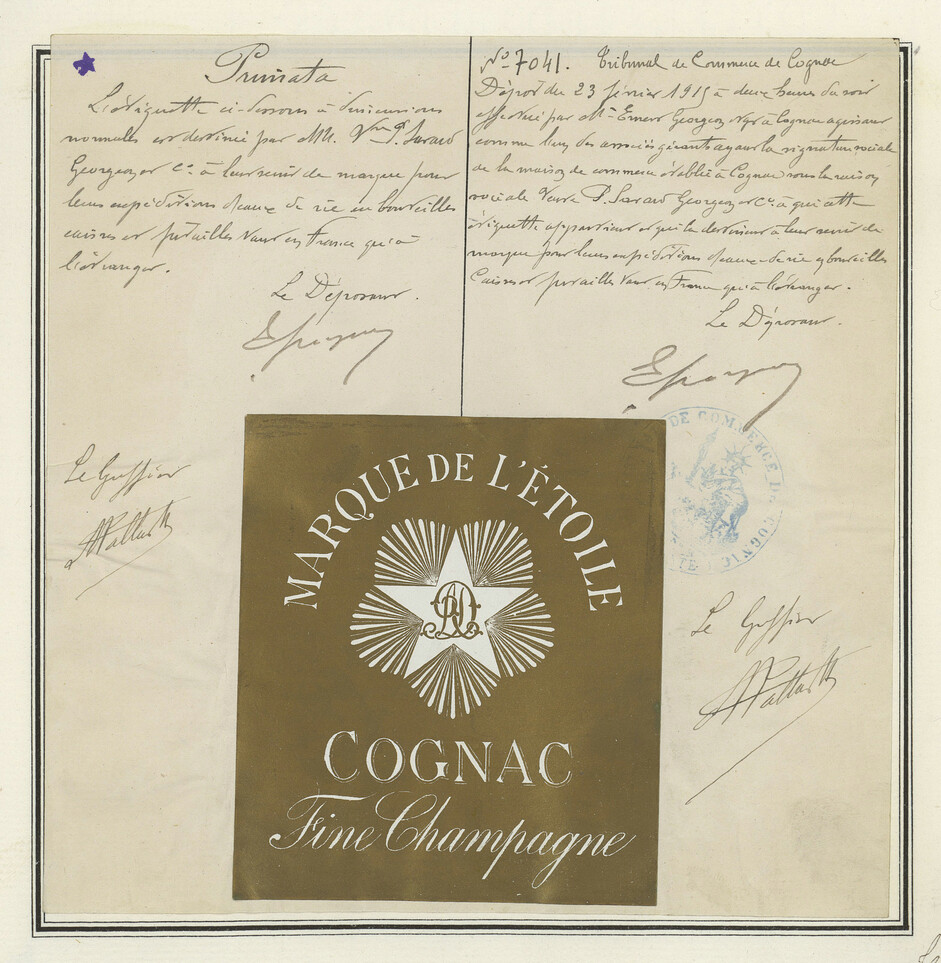 Primata
L'étiquette ci-dessous à dimensions
normales est destinée par MM. Vve P. Sarard
Georgeon et Cie à leur servir de marque pour
leurs expéditions d'eaux de vie en bouteilles
caisses et futailles tant en France qu'à
l'étranger.
Le Déposant.
No 7041. Tribunal de Commerce de Cognac
Dépôt du 23 février 1915 à deux heures du soir
effectué par Mr Georgeon à Cognac agissant
comme l'un des associés gérants ayant la signature sociale
de la maison de commerce établie à Cognac sous la raison
sociale Veuve P. Sarard Georgeon et Cie à qui cette
étiquette appartient et qui la destinent à leur servir de
marque pour leurs expéditions d'eaux-de-vie en bouteilles
Caisses et futailles tant en France qu'à l'étranger.
Le Déposant.
Le Greffier
DE COMMERCE DE COGNAC
MARQUE DE L'ÉTOILE
COGNAC
Fine Champagne
Le Greffier